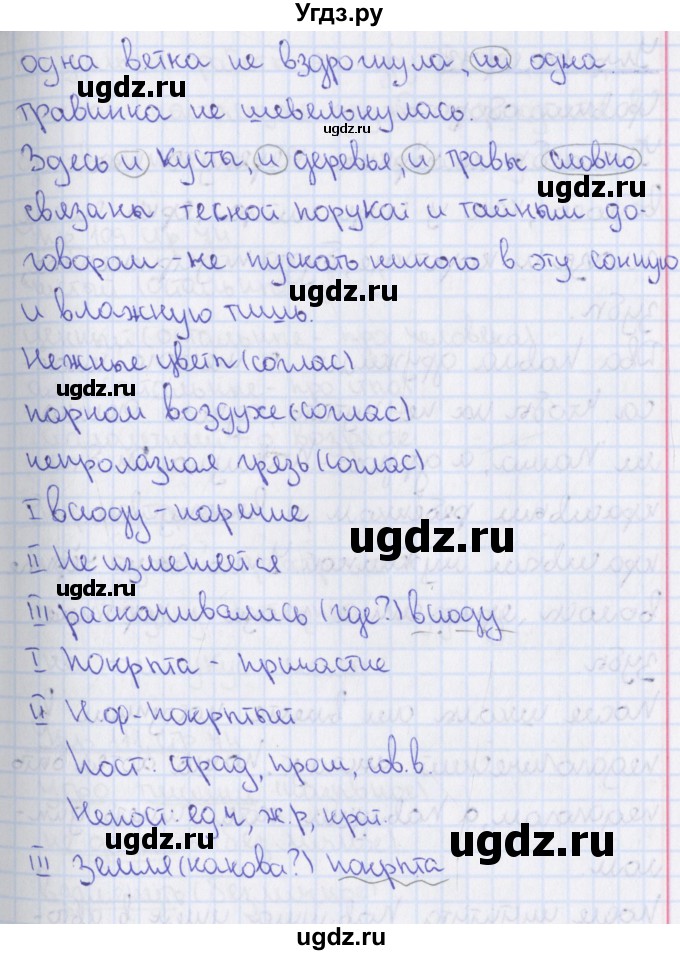 Угдз.ру
одна ветка не вздрогнула, ни одна
ugdz.ru
травинка не шевельнулась.
ugdz.ru
Здесь и кусты, и деревья, и травы словно
ugdz.ru
связаны тесной порукой и тайным до-
говором - не пускать никого в эту сонную
ugdz.ru
и влажную тишь.
Нежные цветы (соглас)
ugdz.ru
парном воздухе (соглас)
непролазная грязь (соглас)
I всюду - наречие
ugdz.ru
II Не изменяется
ugdz.ru
III раскачивались (где?) всюду
I Покрыта - причастие
II Н.ф - покрытый
Пост: страд, прош, сов.в.
Непост. ед.ч, ж.р, крат.
ugdz.ru
ugdz.ru
III Земля (какова?) покрыта
ugdz.ru